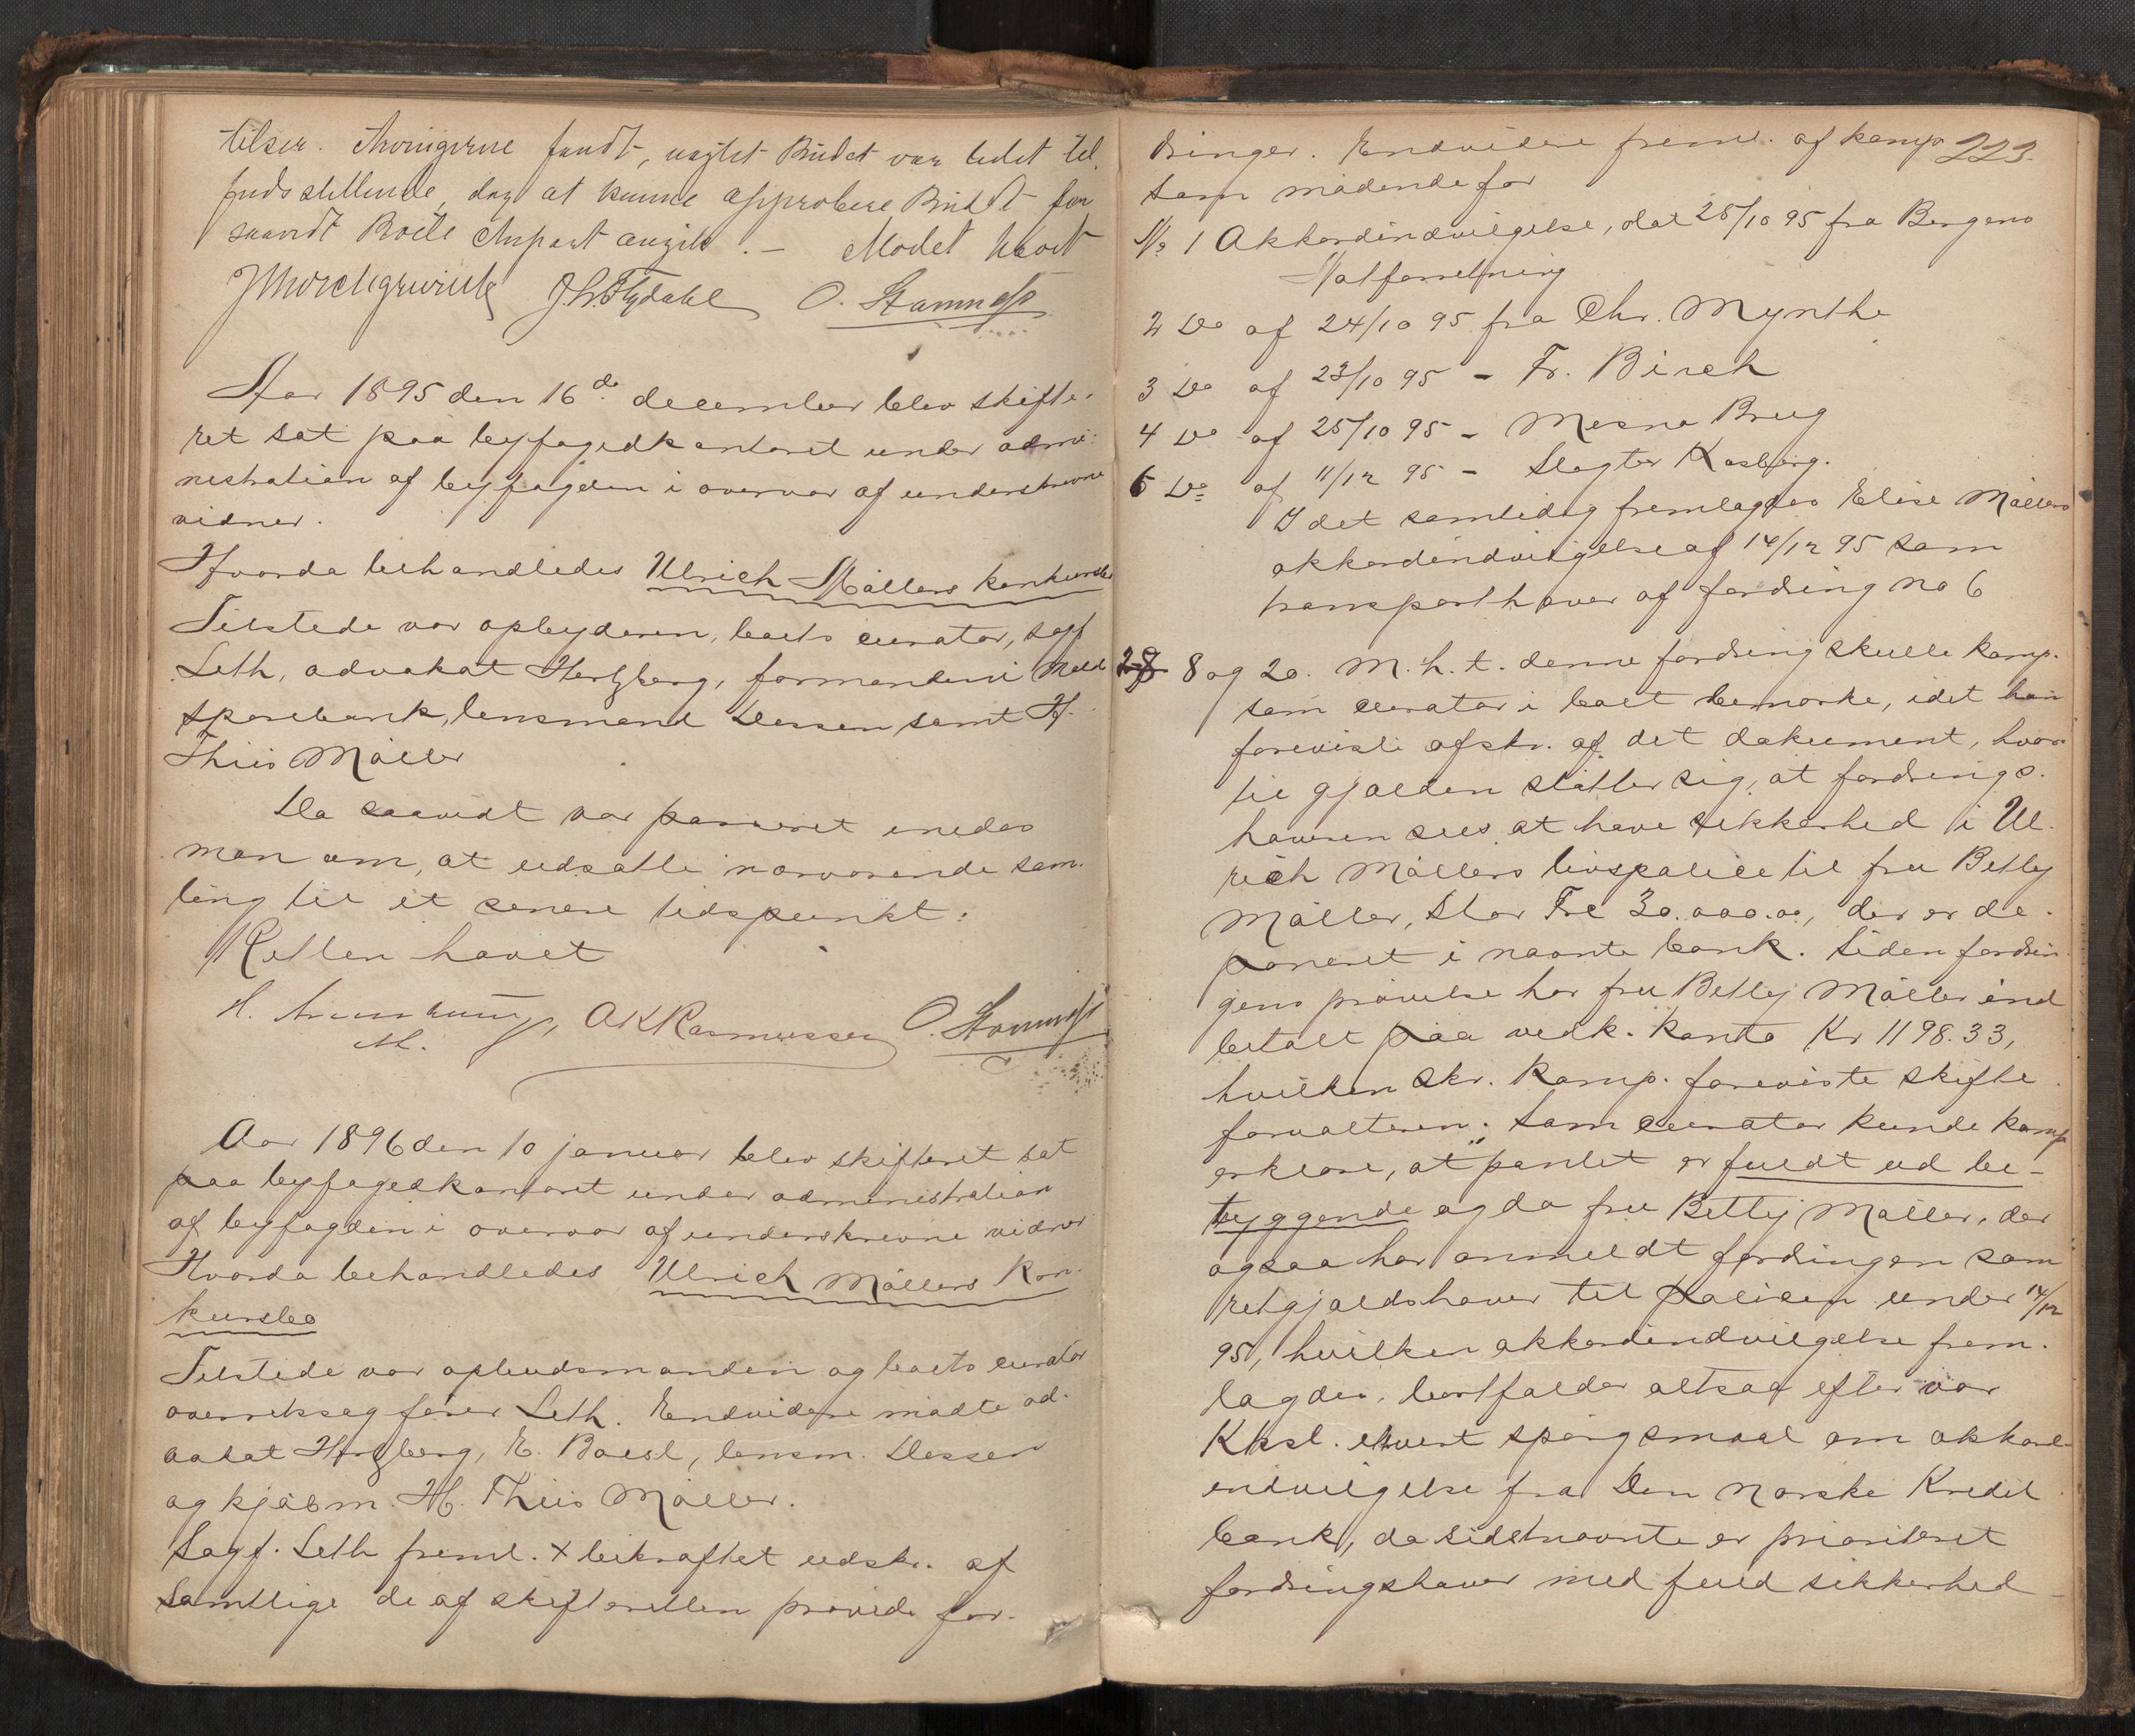 tilser. Arvingerne fandt, uagtet Budet var lidet til
fredsstillende, dog at kunne approbere Budet for
saavidt Boets Anpart angik. — Mødet hævet
J. S. Flydahl O. Stamnes
Aar 1895 den 16de december blev skifte-
ret sat paa byfogedkontoret under admi-
nistration af byfogden i overvær af underskrevne
vidner.
Hvorda behandledes Ulrich Møllers konkursbo
Tilstede var opbyderen, boets curator, sagf
Leth, advokat Hertzberg, formanden i Molde
sparebank, lensmand Dessen samt H.
Thiis Møller
Da saavidt var passeret enedes
man om, at udsætte nærværende sam-
ling til et senere tidspunkt.
Retten hævet
A K Rasmussen O. Stamnes
Aar 1896 den 10 januar blev skifteret sat
paa byfogedkontoret under administration
af byfogden i overvær af underskrevne vidner
Hvorda behandledes Ulrich Møllers Kon-
kursbo
Tilstede var opbudsmanden og boets curator
overretssagfører Leth. Endvidere mødte ad-
vokat Hertzberg, E. Boest, lensm. Dessen
og kjøbm. H. Thiis Møller.
Sagf. Leth freml. + bekræftet udskr. af
samtlige de af skifteretten prøvede for-
223.
dringer. Endvidere freml. af komp
som mødende for
No 1 Akkordindvilgelse, dat 25/10 95 fra Bergens
Notforretning
2 Do af 24/10 95 fra Chr. Mynthe
3 Do af 23/10 95 - Fr. Birch
4 Do af 25/10 95 - Mesna Brug
5 Do af 11/12 95 - Slagter Kasberg.
Idet samtidig fremlagdes Elise Møllers
akkordindvilgelse af 14/12 95 som
transporthaver af fordring no 6
8 og 20. M. h. t. denne fordring skulle komp.
som curator i boet bemærke, idet han
foreviste afskr. af det dokument, hvor-
til gjælden støtter sig, at fordrings-
haveren sees at have sikkerhed i Ul-
rich Møllers livspolice til fru Betty
Møller, stor Frc 30.000.00, der er de-
poneret i nævnte bank. Siden fordrin-
gens prøvelse har fru Betty Møller ind
betalt paa vedk. konto Kr 1198.33,
hvilken skr. komp. foreviste skifte
forvalteren. Som curator kunde komp
erklære, at pantet er fuldt ud be-
tryggende og da fru Betty Møller, der
ogsaa har anmeldt fordringen som
retgjældshaver til policen under 14/12
95, hvilken akkordindvilgelse frem-
lagdes, bortfalder altsaa efter vor
Kksl. ethvert spørgsmaal om akkord-
indvilgelse fra Den norske Kredit
bank, da sidstnævnte er prioriteret
fordringshaver med fuld sikkerhed